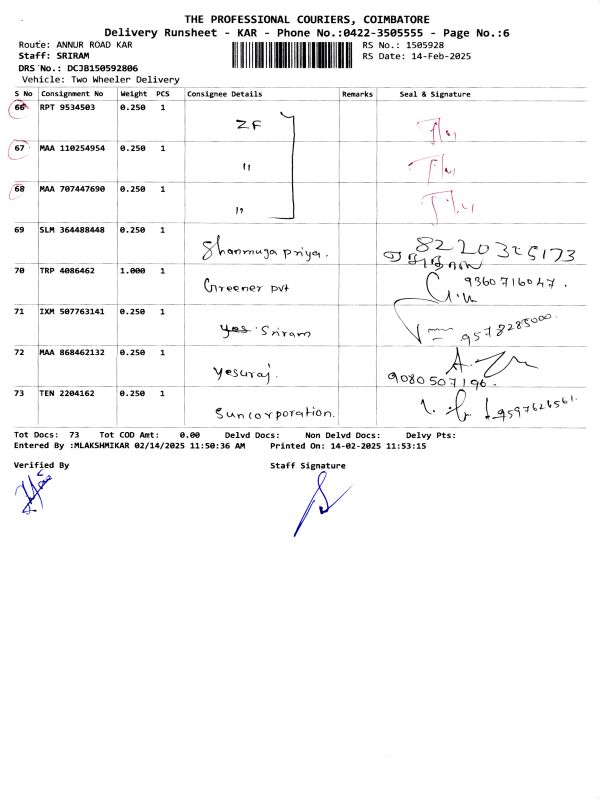 THE PROFESSIONAL COURIERS, COIMBATORE
Delivery Runsheet - KAR - Phone No.:0422-3505555 - Page No.:6
Route: ANNUR ROAD KAR RS No.: 1505928
Staff: SRIRAM RS Date: 14-Feb-2025
DRS No.: DCJB150592806
Vehicle: Two Wheeler Delivery
S No Consignment No Weight PCS Consignee Details Remarks Seal & Signature
66 RPT 9534503 0.250 1
ZF
67 MAA 110254954 0.250 1
"
68 MAA 707447690 0.250 1
"
69 SLM 364488448 0.250 1
Shanmuga priya. 8220325173
70 TRP 4086462 1.000 1
Greener pvt 9360716047.
71 IXM 507763141 0.250 1
yes Sriram 9578285000.
72 MAA 868462132 0.250 1
yesuraj. 9080507196.
73 TEN 2204162 0.250 1
Suncorporation. 9597626561.
Tot Docs: 73 Tot COD Amt: 0.00 Delvd Docs: Non Delvd Docs: Delvy Pts:
Entered By :MLAKSHMIKAR 02/14/2025 11:50:36 AM Printed On: 14-02-2025 11:53:15
Verified By Staff Signature